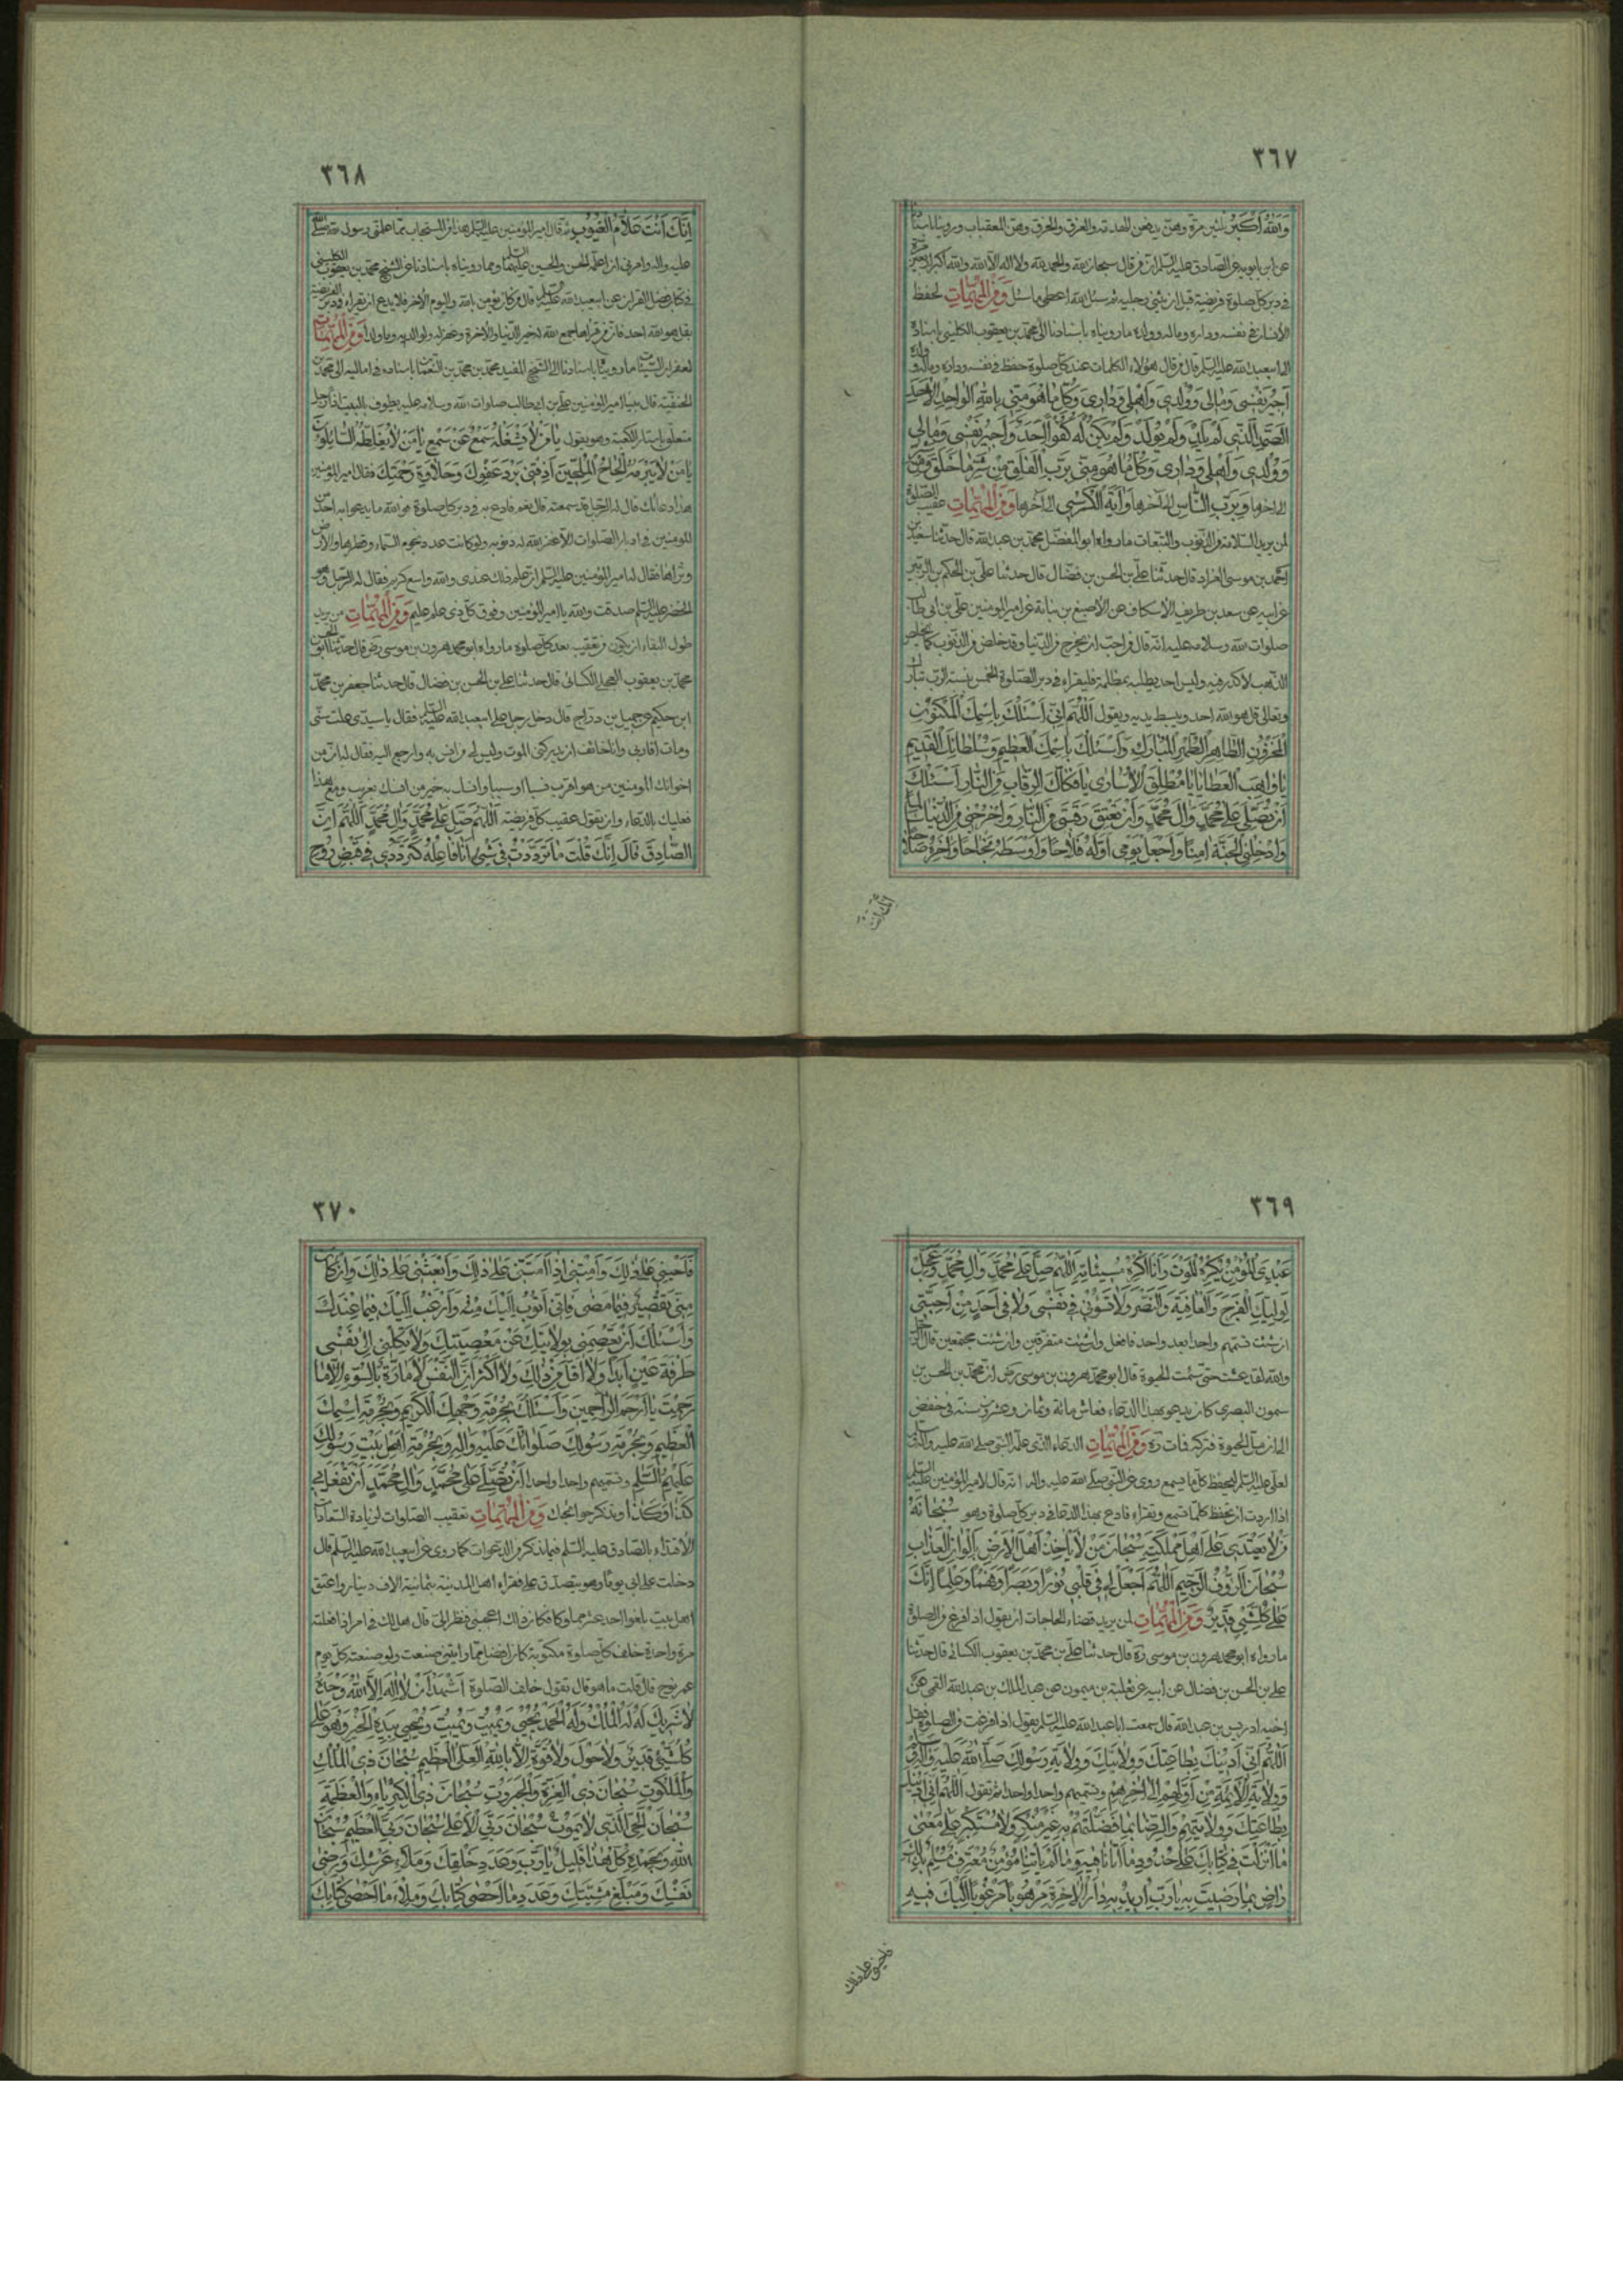 ٣٦٧
وَاللهُ أَكْبَرُ ثلثين مرة وهنّ يدفعن الهدم والغرق والحرق
عن ابن بابويه عن الصادق عليه السلام انه من قال سبحان الله والحمد لله ولا اله الا الله والله اكبر
في دبر كل صلوة فريضة قبل ان يثنى رجليه ثم سئل الله اعطى ما سئل وَمِنَ الْمُهِمَّاتِ لحفظ
الانسان في نفسه وداره وماله وولده ما رويناه باسنادنا الى محمد بن يعقوب الكليني باسناده
الى ابيعبد الله عليه السلم قال من قال هؤلاء الكلمات عند كل صلوة حفظ في نفسه وداره وماله وولده
اُجِيرُ نَفْسِي وَمَالِي وَوُلْدِي وَأَهْلِي وَدَارِي وَكُلَّ مَا هُوَ مِنِّي بِاللهِ الْوَاحِدِ الْأَحَدِ
الصَّمَدِ الَّذِي لَمْ يَلِدْ وَلَمْ يُولَدْ وَلَمْ يَكُنْ لَهُ كُفُوًا أَحَدٌ وَاُجِيرُ نَفْسِي وَمَالِي
وَوُلْدِي وَأَهْلِي وَدَارِي وَكُلَّ مَا هُوَ مِنِّي بِرَبِّ الْفَلَقِ مِنْ شَرِّ مَا خَلَقَ
الى اخرها وَبِرَبِّ النَّاسِ الى اخرها وَآيَةِ الْكُرْسِي الى اخرها وَمِنَ الْمُهِمَّاتِ عقيب الصلوة
لمن يريد السلامة من الذنوب والتبعات ما رواه ابو المفضل محمد بن عبد الله قال حدثنا سعيد بن
احمد بن موسى قال حدثنا علي بن الحسن بن فضال قال حدثنا علي بن الحكم بن الزبير
عن ابيه عن سعد بن طريف الاسكاف عن الاصبغ بن نباتة عن امير المؤمنين علي بن ابي طالب
صلوات الله وسلامه عليه انه قال من احب ان يخرج من الدنيا وقد خلص من الذنوب كما يخلص
الذهب لا كدر فيه وليس احد يطلبه بمظلمة فليقراء في دبر الصلوة الخمس نسبة الرب تبارك
وتعالى قل هو الله احد ويبسط يديه ويقول اَللَّهُمَّ إِنِّي أَسْئَلُكَ بِاسْمِكَ الْمَكْنُونِ
الْمَخْزُونِ الطَّاهِرِ الطُّهْرِ الْمُبَارَكِ وَأَسْئَلُكَ بِاسْمِكَ الْعَظِيمِ وَسُلْطَانِكَ الْقَدِيمِ
يَا وَاهِبَ الْعَطَايَا يَا مُطْلِقَ الْأُسَارَى يَا فَكَّاكَ الرِّقَابِ مِنَ النَّارِ أَسْئَلُكَ
أَنْ تُصَلِّيَ عَلَى مُحَمَّدٍ وَآلِ مُحَمَّدٍ وَأَنْ تُعْتِقَ رَقَبَتِي مِنَ النَّارِ وَأَخْرِجْنِي مِنَ الدُّنْيَا
وَأَدْخِلْنِي الْجَنَّةَ آمِنًا وَاجْعَلْ يَوْمِي أَوَّلَهُ فَلَاحًا وَأَوْسَطَهُ نَجَاحًا وَآخِرَهُ صَلَاحًا
٣٦٨
إِنَّكَ أَنْتَ عَلَّامُ الْغُيُوبِ ثم قال امير المؤمنين عليه السلم هذا من المستجاب مما علمني رسول الله صلى الله
عليه واله وامرني ان اعلمه الحسن والحسين عليهما السلم ومما رويناه باسنادنا عن الشيخ محمد بن يعقوب الكليني
في كتاب فضل القران عن ابيعبد الله عليه السلم قال من كان يؤمن بالله واليوم الاخر فلا يدع ان يقراء في دبر الفريضة
بقل هو الله احد فانه من قراها جمع الله له خير الدنيا والاخرة وغفر له ولوالديه وما ولدا وَمِنَ الْمُهِمَّاتِ
لغفران السيئات ما رويناه باسنادنا الى الشيخ المفيد محمد بن محمد بن النعمان باسناده في اماليه الى محمد بن
الحنفية قال بينا امير المؤمنين علي بن ابي طالب صلوات الله وسلامه عليه يطوف بالبيت اذا رجل
متعلق باستار الكعبة وهو يقول يَا مَنْ لَا يَشْغَلُهُ سَمْعٌ عَنْ سَمْعٍ يَا مَنْ لَا يُغَلِّطُهُ السَّائِلُونَ
يَا مَنْ لَا يُبْرِمُهُ إِلْحَاحُ الْمُلِحِّينَ أَذِقْنِي بَرْدَ عَفْوِكَ وَحَلَاوَةَ رَحْمَتِكَ فقال امير المؤمنين
هذا دعائك قال له الرجل قد سمعته قال نعم قال فادع به في دبر كل صلوة فوالله ما يدعو به احد من
المؤمنين في ادبار الصلوات الا غفر الله له ذنوبه ولو كانت عدد نجوم السماء وقطرها والارض
وثراها فقال له امير المؤمنين عليه السلم ان علم ذلك عندى والله واسع كريم فقال له الرجل وهو
الخضر عليه السلم صدقت والله يا امير المؤمنين وفوق كل ذى علم عليم وَمِنَ الْمُهِمَّاتِ من يريد
طول البقاء ان يكون من تعقيبه بعد كل صلوة ما رواه ابو محمد هرون بن موسى رض قال حدثنا ابو الحسن
محمد بن يعقوب العجلي الكسائي قال حدثنا علي بن الحسن بن فضال قال حدثنا جعفر بن محمد
ابن حكيم عن جميل بن دراج قال دخل رجل على ابيعبد الله عليه السلم فقال يا سيدى علت سنى
ومات اقاربى وانا خائف ان يدركنى الموت وليس لى من انس به وارجع اليه فقال له ان من
اخوانك المؤمنين من هو اقرب نسبا او سببا وانسك به خير من انسك بقريب ومع هذا
فعليك بالدعاء وان تقول عقيب كل فريضة اَللَّهُمَّ صَلِّ عَلَى مُحَمَّدٍ وَآلِ مُحَمَّدٍ اَللَّهُمَّ إِنَّ
الصَّادِقَ قَالَ إِنَّكَ قُلْتَ مَا تَرَدَّدْتُ فِي شَيْءٍ أَنَا فَاعِلُهُ كَتَرَدُّدِي فِي قَبْضِ رُوحِ
٣٦٩
عَبْدِيَ الْمُؤْمِنِ يَكْرَهُ الْمَوْتَ وَأَنَا أَكْرَهُ مَسَاءَتَهُ اَللَّهُمَّ صَلِّ عَلَى مُحَمَّدٍ وَآلِ مُحَمَّدٍ وَعَجِّلْ
لِوَلِيِّكَ الْفَرَجَ وَالْعَافِيَةَ وَالنَّصْرَ وَلَا تَسُؤْنِي فِي نَفْسِي وَلَا فِي أَحَدٍ مِنْ أَحِبَّتِي
ان شئت تسميهم واحدا بعد واحد فافعل وان شئت متفرقين وان شئت مجتمعين قال الرجل
والله لقد عشت حتى سئمت الحيوة قال ابو محمد هرون بن موسى رض ان محمد بن الحسن بن
شمون البصرى كان يدعو بهذا الدعاء فعاش مائة وثمان وعشرين سنة في خفض
الى ان مل الحيوة فتركه فمات ره وَمِنَ الْمُهِمَّاتِ الدعاء الذى علمه النبي صلى الله عليه واله
لعلى عليه السلم ليحفظ كل ما يسمع روى عن النبي صلى الله عليه واله انه قال لامير المؤمنين عليه السلم
اذا اردت ان تحفظ كلما تسمع وتقراء فادع بهذا الدعا في دبر كل صلوة وهو سُبْحَانَ
مَنْ لَا يَعْتَدِي عَلَى أَهْلِ مَمْلَكَتِهِ سُبْحَانَ مَنْ لَا يَأْخُذُ أَهْلَ الْأَرْضِ بِأَلْوَانِ الْعَذَابِ
سُبْحَانَ الرَّؤُفِ الرَّحِيمِ اَللَّهُمَّ اجْعَلْ لِي فِي قَلْبِي نُورًا وَبَصَرًا وَفَهْمًا وَعِلْمًا إِنَّكَ
عَلَى كُلِّ شَيْءٍ قَدِيرٌ وَمِنَ الْمُهِمَّاتِ لمن يريد قضاء الحاجات ان يقول اذا فرغ من الصلوة
ما رواه ابو محمد هرون بن موسى ره قال حدثنا علي بن محمد بن يعقوب الكسائي قال حدثنا
علي بن الحسن بن فضال عن ابيه عن ثعلبة بن ميمون عن عبد الملك بن عبد الله القمى عن
اخيه ادريس بن عبد الله قال سمعت ابا عبد الله عليه السلم يقول اذا فرغت من الصلوة فقل
اَللَّهُمَّ إِنِّي أَدِينُكَ بِطَاعَتِكَ وَوِلَايَتِكَ وَوِلَايَةِ رَسُولِكَ صَلَّى اللهُ عَلَيْهِ وَآلِهِ
وَوِلَايَةِ الْأَئِمَّةِ مِنْ أَوَّلِهِمْ إِلَى آخِرِهِمْ وتسميهم واحدا واحدا ثم تقول اَللَّهُمَّ إِنِّي أَدِينُكَ
بِطَاعَتِكَ وَوِلَايَتِهِمْ وَالرِّضَا بِمَا فَضَّلْتَهُمْ بِهِ غَيْرَ مُنْكِرٍ وَلَا مُسْتَكْبِرٍ عَلَى مَعْنَى
مَا أَنْزَلْتَ فِي كِتَابِكَ عَلَى حُدُودِ مَا أَتَانَا فِيهِ وَمَا لَمْ يَأْتِنَا مُؤْمِنٌ مُعْتَرِفٌ مُسَلِّمٌ بِذَلِكَ
رَاضٍ بِمَا رَضِيتَ بِهِ يَا رَبِّ أُرِيدُ بِهِ الدَّارَ الْآخِرَةَ مَرْهُوبًا مَرْغُوبًا إِلَيْكَ فِيهِ
فاحينى على ذلك
٣٧٠
فَأَحْيِنِي عَلَى ذَلِكَ وَأَمِتْنِي إِذَا أَمَتَّنِي عَلَى ذَلِكَ وَابْعَثْنِي عَلَى ذَلِكَ وَإِنْ كَانَ
مِنِّي تَقْصِيرٌ فِيمَا مَضَى فَإِنِّي أَتُوبُ إِلَيْكَ مِنْهُ وَأَرْغَبُ إِلَيْكَ فِيمَا عِنْدَكَ
وَأَسْئَلُكَ أَنْ تَعْصِمَنِي بِوِلَايَتِكَ عَنْ مَعْصِيَتِكَ وَلَا تَكِلْنِي إِلَى نَفْسِي
طَرْفَةَ عَيْنٍ أَبَدًا وَلَا أَقَلَّ مِنْ ذَلِكَ وَلَا أَكْثَرَ إِنَّ النَّفْسَ لَأَمَّارَةٌ بِالسُّوءِ إِلَّا مَا
رَحِمْتَ يَا أَرْحَمَ الرَّاحِمِينَ وَأَسْئَلُكَ بِحُرْمَةِ وَجْهِكَ الْكَرِيمِ وَبِحُرْمَةِ اسْمِكَ
الْعَظِيمِ وَبِحُرْمَةِ رَسُولِكَ صَلَوَاتُكَ عَلَيْهِ وَآلِهِ وَبِحُرْمَةِ أَهْلِ بَيْتِ رَسُولِكَ
عَلَيْهِمُ السَّلَمُ وتسميهم واحدا واحدا أَنْ تُصَلِّيَ عَلَى مُحَمَّدٍ وَآلِ مُحَمَّدٍ أَنْ تَفْعَلَ بِي
كَذَا وَكَذَا وتذكر حوائجك وَمِنَ الْمُهِمَّاتِ تعقيب الصلوات لزيادة السعادات
الاقتداء بالصادق عليه السلم فيما نذكره من الدعوات كما روى عن ابيعبد الله عليه السلم قال
دخلت على ابى يوما وهو يتصدق على فقراء اهل المدينة بثمانية الاف دينار واعتق
اهل بيت بلغوا احد عشر مملوكا فكان ذلك اعجبنى فنظر الى ثم قال هل لك في امر اذا فعلته
مرة واحدة خلف كل صلوة مكتوبة كان افضل مما رايتنى صنعت ولو صنعته كل يوم
عمر نوح قال قلت ما هو قال تقول خلف الصلوة أَشْهَدُ أَنْ لَا إِلَهَ إِلَّا اللهُ وَحْدَهُ
لَا شَرِيكَ لَهُ لَهُ الْمُلْكُ وَلَهُ الْحَمْدُ يُحْيِي وَيُمِيتُ وَيُمِيتُ وَيُحْيِي بِيَدِهِ الْخَيْرُ وَهُوَ عَلَى
كُلِّ شَيْءٍ قَدِيرٌ وَلَا حَوْلَ وَلَا قُوَّةَ إِلَّا بِاللهِ الْعَلِيِّ الْعَظِيمِ سُبْحَانَ ذِي الْمُلْكِ
وَالْمَلَكُوتِ سُبْحَانَ ذِي الْعِزَّةِ وَالْجَبَرُوتِ سُبْحَانَ ذِي الْكِبْرِيَاءِ وَالْعَظَمَةِ
سُبْحَانَ الْحَيِّ الَّذِي لَا يَمُوتُ سُبْحَانَ رَبِّيَ الْأَعْلَى سُبْحَانَ رَبِّيَ الْعَظِيمِ سُبْحَانَ
اللهِ وَبِحَمْدِهِ كُلُّ هَذَا قَلِيلٌ يَا رَبِّ وَعَدَدَ خَلْقِكَ وَمِلْءَ عَرْشِكَ وَرِضَى
نَفْسِكَ وَمَبْلَغَ مَشِيَّتِكَ وَعَدَدَ مَا أَحْصَى كِتَابُكَ وَمِلْءَ مَا أَحْصَى كِتَابُكَ